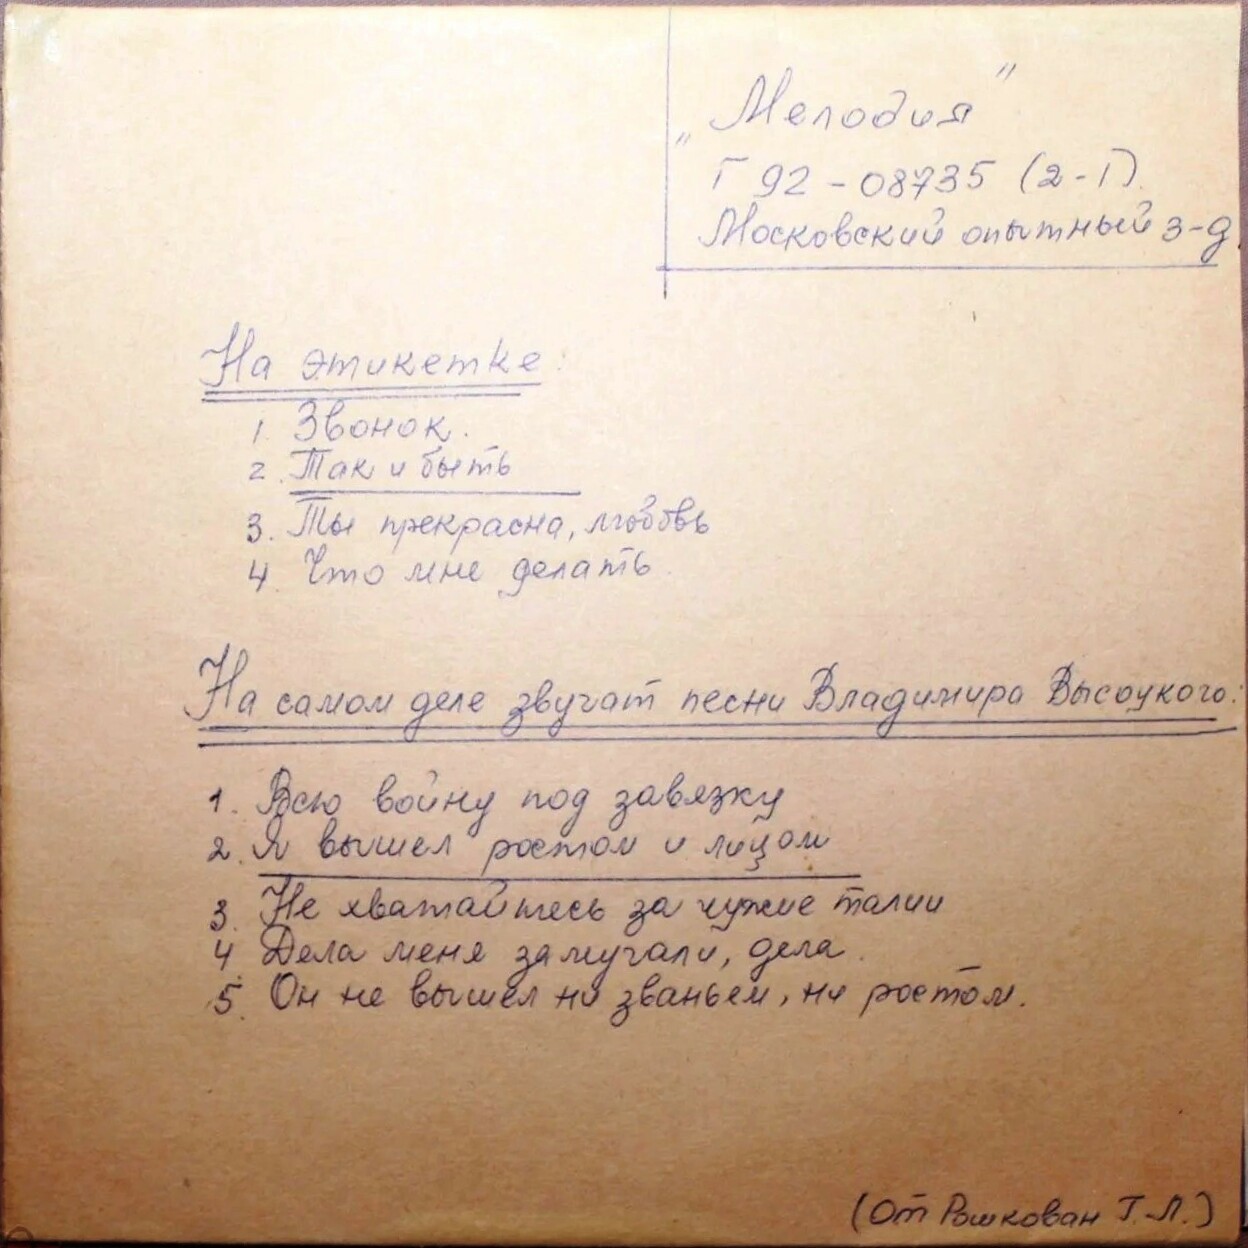 „Мелодия"
Г 92-08735 (2-Г)
Московский опытный з-д.
На этикетке:
1. Звонок.
2. Так и быть
3. Ты прекрасна, любовь
4 Что мне делать.
На самом деле звучат песни Владимира Высоцкого:
1. Всю войну под завязку
2. Я вышел ростом и лицом
3. Не хватайтесь за чужие талии
4 Дела меня замучали, дела.
5. Он не вышел ни званьем, ни ростом.
(От Рошкован Т.Л.)